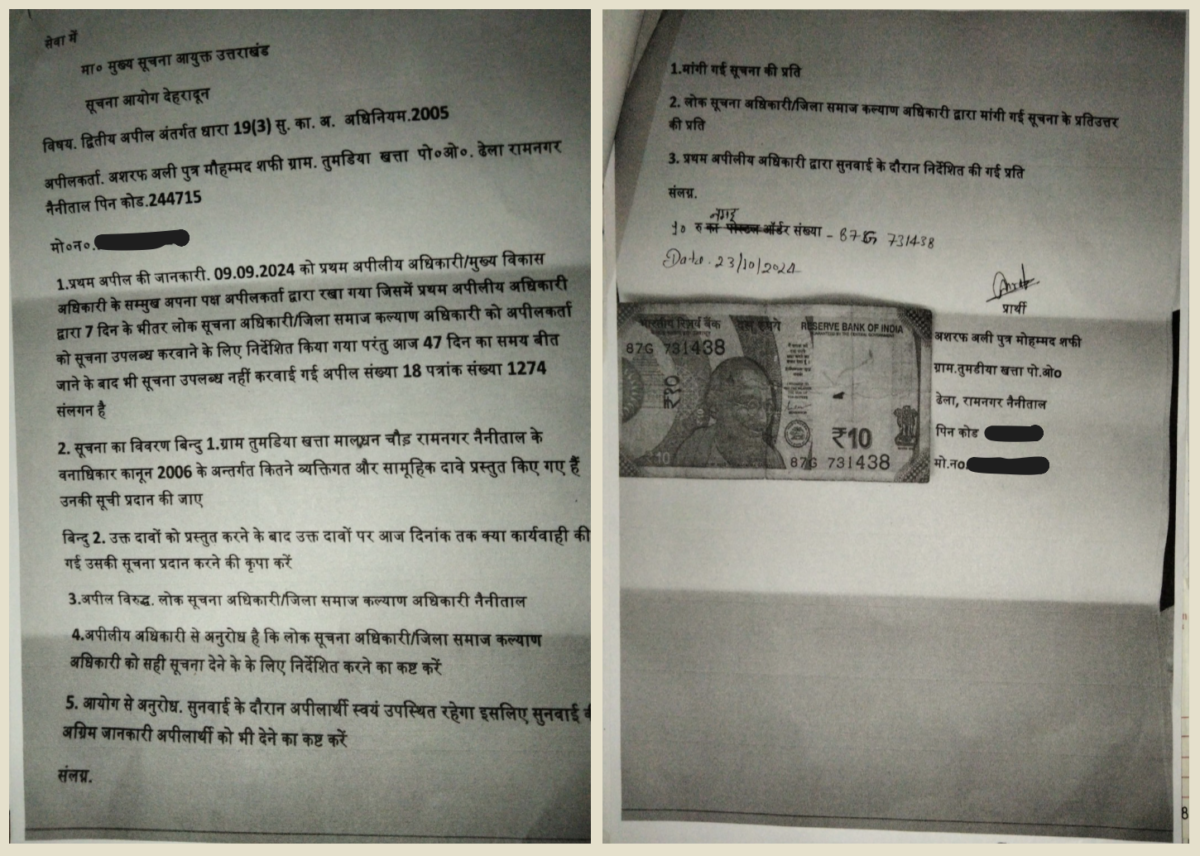 सेवा में
मा० मुख्य सूचना आयुक्त उत्तराखंड
सूचना आयोग देहरादून
विषय. द्वितीय अपील अंतर्गत धारा 19(3) सु. का. अ. अधिनियम.2005
अपीलकर्ता. अशरफ अली पुत्र मौहम्मद शफी ग्राम. तुमडिया खत्ता पो०ओ०. ढेला रामनगर
नैनीताल पिन कोड.244715
मो०न०.
1.प्रथम अपील की जानकारी. 09.09.2024 को प्रथम अपीलीय अधिकारी/मुख्य विकास
अधिकारी के सम्मुख अपना पक्ष अपीलकर्ता द्वारा रखा गया जिसमें प्रथम अपीलीय अधिकारी
द्वारा 7 दिन के भीतर लोक सूचना अधिकारी/जिला समाज कल्याण अधिकारी को अपीलकर्ता
को सूचना उपलब्ध करवाने के लिए निर्देशित किया गया परंतु आज 47 दिन का समय बीत
जाने के बाद भी सूचना उपलब्ध नहीं करवाई गई अपील संख्या 18 पत्रांक संख्या 1274
संलगन है
2. सूचना का विवरण बिन्दु 1.ग्राम तुमडिया खत्ता मालधन चौड़ रामनगर नैनीताल के
वनाधिकार कानून 2006 के अन्तर्गत कितने व्यक्तिगत और सामूहिक दावे प्रस्तुत किए गए हैं
उनकी सूची प्रदान की जाए
बिन्दु 2. उक्त दावों को प्रस्तुत करने के बाद उक्त दावों पर आज दिनांक तक क्या कार्यवाही की
गई उसकी सूचना प्रदान करने की कृपा करें
3.अपील विरुद्ध. लोक सूचना अधिकारी/जिला समाज कल्याण अधिकारी नैनीताल
4.अपीलीय अधिकारी से अनुरोध है कि लोक सूचना अधिकारी/जिला समाज कल्याण
अधिकारी को सही सूचना देने के के लिए निर्देशित करने का कष्ट करें
5. आयोग से अनुरोध. सुनवाई के दौरान अपीलार्थी स्वयं उपस्थित रहेगा इसलिए सुनवाई
अग्रिम जानकारी अपीलार्थी को भी देने का कष्ट करें
संलग्न.
1.मांगी गई सूचना की प्रति
2. लोक सूचना अधिकारी/जिला समाज कल्याण अधिकारी द्वारा मांगी गई सूचना के प्रतिउत्तर
की प्रति
3. प्रथम अपीलीय अधिकारी द्वारा सुनवाई के दौरान निर्देशित की गई प्रति
संलग्न.
नगद
10 रु का पोस्टल ऑर्डर संख्या - 87G 731438
Date. 23/10/2024
प्रार्थी
भारतीय रिज़र्व बैंक दस रुपये RESERVE BANK OF INDIA
87G 731438
₹10
₹10
87G 731438
अशरफ अली पुत्र मोहम्मद शफी
ग्राम.तुमडीया खत्ता पो.ओ०
ढेला, रामनगर नैनीताल
पिन कोड
मो.न०.